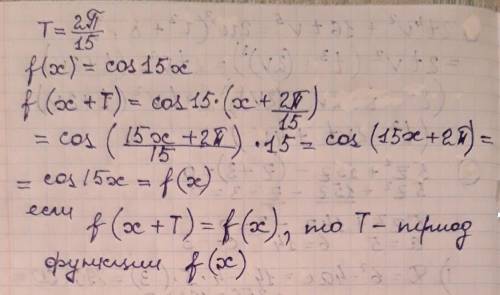 T = 2π/15
f(x) = cos 15x
f(x+T) = cos 15·(x + 2π/15)
= cos ((15x + 2π)/15)·15 = cos (15x+2π) =
= cos 15x = f(x)
если f(x+T) = f(x), то T - период
функции f(x)